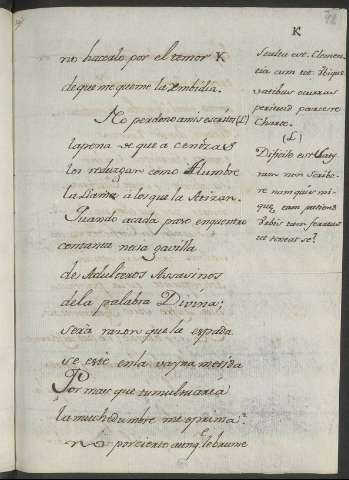 72
K
no hacerlo por el temor K
de que me queme la Embidia.
No perdono a mis escritos (L)
la pena de que a cenizas
los reduzgan como alumbre
la llama a los que la Atizan.
Quando a cada paso enquentro
con tanta necia gavilla
de Adulteros Assasinos
de la palabra Divina;
sería razon que la espada
se esté en la vayna metida
Por mas que tumultuaria
la muchedumbre me oprima?
no por cierto aunq.e le brume
Stulta est Clemen-
tia cum tot Ubique
vatibus ocurras
periturae parcere
Charte.
(L)
Dificile est Saty-
ram non scribe-
re nam quis ini-
que tam patiens
Vrbis tam ferreus
ut teneat se?